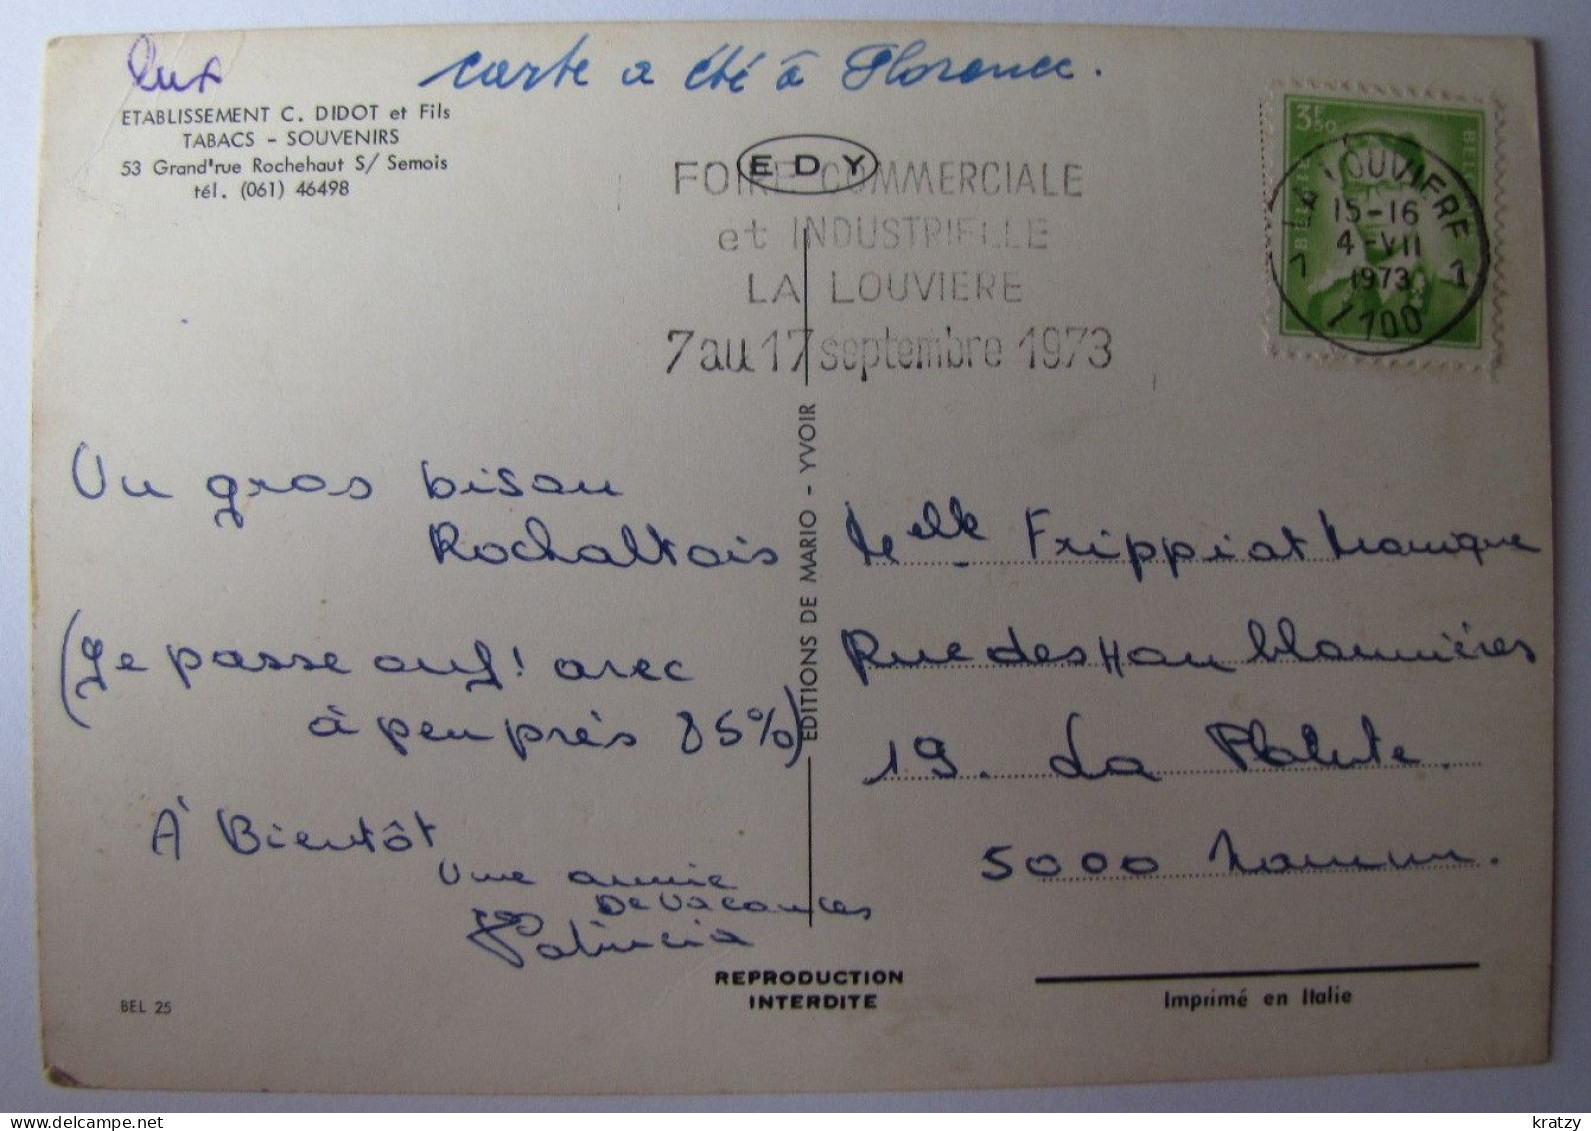 lux
carte a été à Florence.
ETABLISSEMENT C. DIDOT et Fils
TABACS - SOUVENIRS
53 Grand'rue Rochehaut S/ Semois
tél. (061) 46498
EDY
FOIRE COMMERCIALE
et INDUSTRIELLE
LA LOUVIERE
7 au 17 septembre 1973
3F50
BELGIE
LA LOUVIERE
15-16
4-VII
1973
1 1
7100
Un gros bisou
Rochaltois
(Je passe ouf! avec
à peu près 85%)
A Bientôt
Une amie
De Vacances
Patricia
EDITIONS DE MARIO - YVOIR
Melle Frippiat Monique
Rue des
19. La Plante.
5000 Namur.
REPRODUCTION
INTERDITE
BEL 25
Imprimé en Italie
www.delcampe.net
kratzy